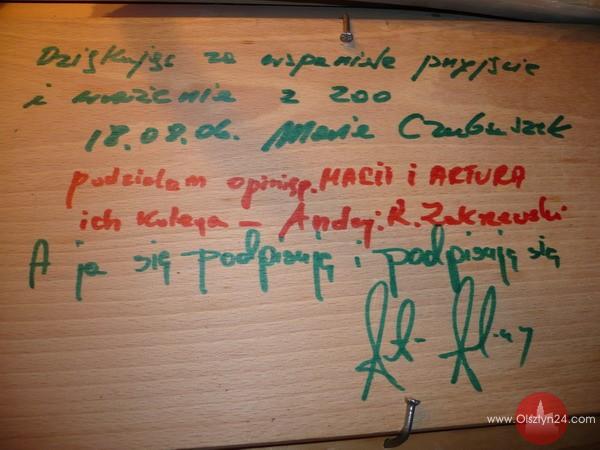 Dziękując za wspaniałe przyjście
i wrażenia z ZOO
18.08.06. Maria Czubaszek
podzielam opinię p. MARII i ARTURA
ich kolega — Andrzej. R. Zakrzewski
A ja się podpisuję i podpisuję się
www.Olsztyn24.com